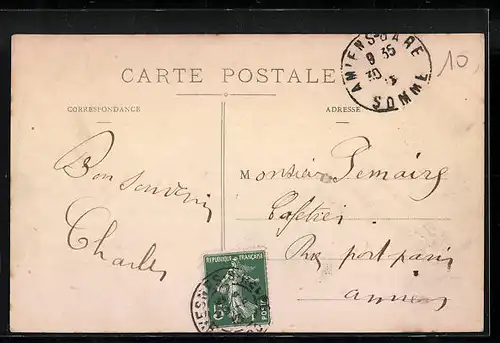 AMIENS-GARE
9 35
30
SOMME
10
CARTE POSTALE
CORRESPONDANCE
ADRESSE
Bon souvenir
Charles
Monsieur Lemaire
Cafetier
Rue port paris
amiens
REPUBLIQUE FRANÇAISE
5
POSTES